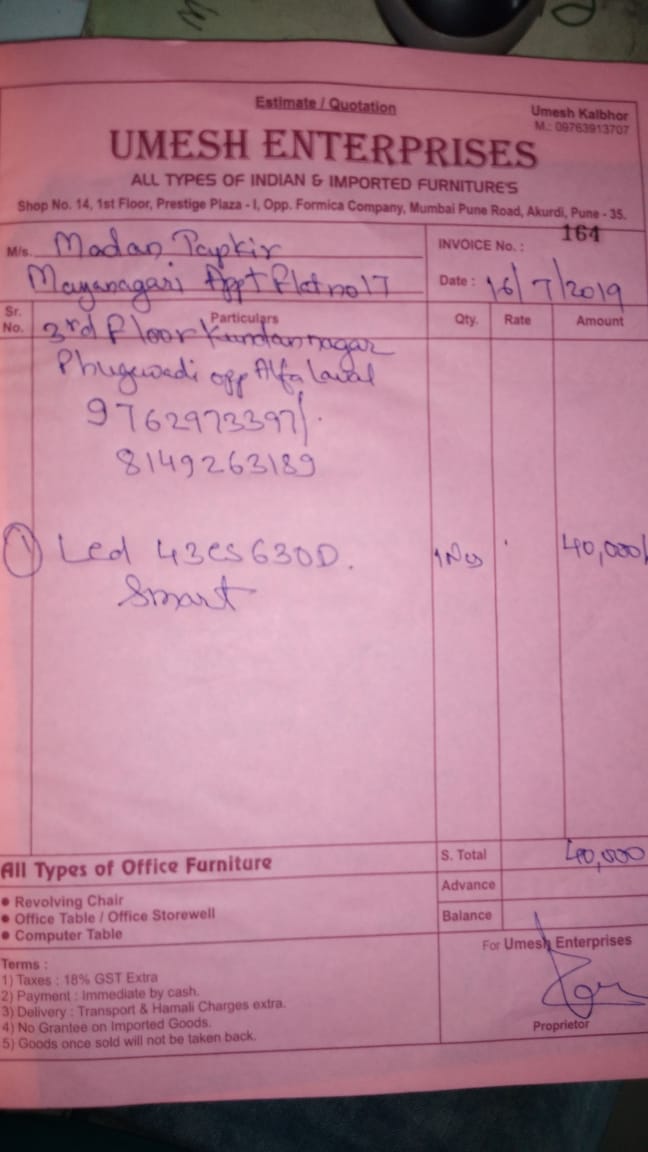 Estimate / Quotation
Umesh Kalbhor
M.: 09763913707
UMESH ENTERPRISES
ALL TYPES OF INDIAN & IMPORTED FURNITURE'S
Shop No. 14, 1st Floor, Prestige Plaza - I, Opp. Formica Company, Mumbai Pune Road, Akurdi, Pune - 35.
M/s. Madan Tapkir
INVOICE No. : 164
Mayanagari Appt Flat no 17
Date : 16/7/2019
Sr. No. Particulars Qty. Rate Amount
3rd Floor Kundan nagar
Phugewadi opp Alfa Laval
9762973397/.
8149263189
① Led 43es630D. 1Nos 40,000/
Smart
All Types of Office Furniture
S. Total 40,000
• Revolving Chair
Advance
• Office Table / Office Storewell
Balance
• Computer Table
For Umesh Enterprises
Terms :
1) Taxes : 18% GST Extra
2) Payment : Immediate by cash.
3) Delivery : Transport & Hamali Charges extra.
4) No Grantee on Imported Goods.
5) Goods once sold will not be taken back.
Proprietor